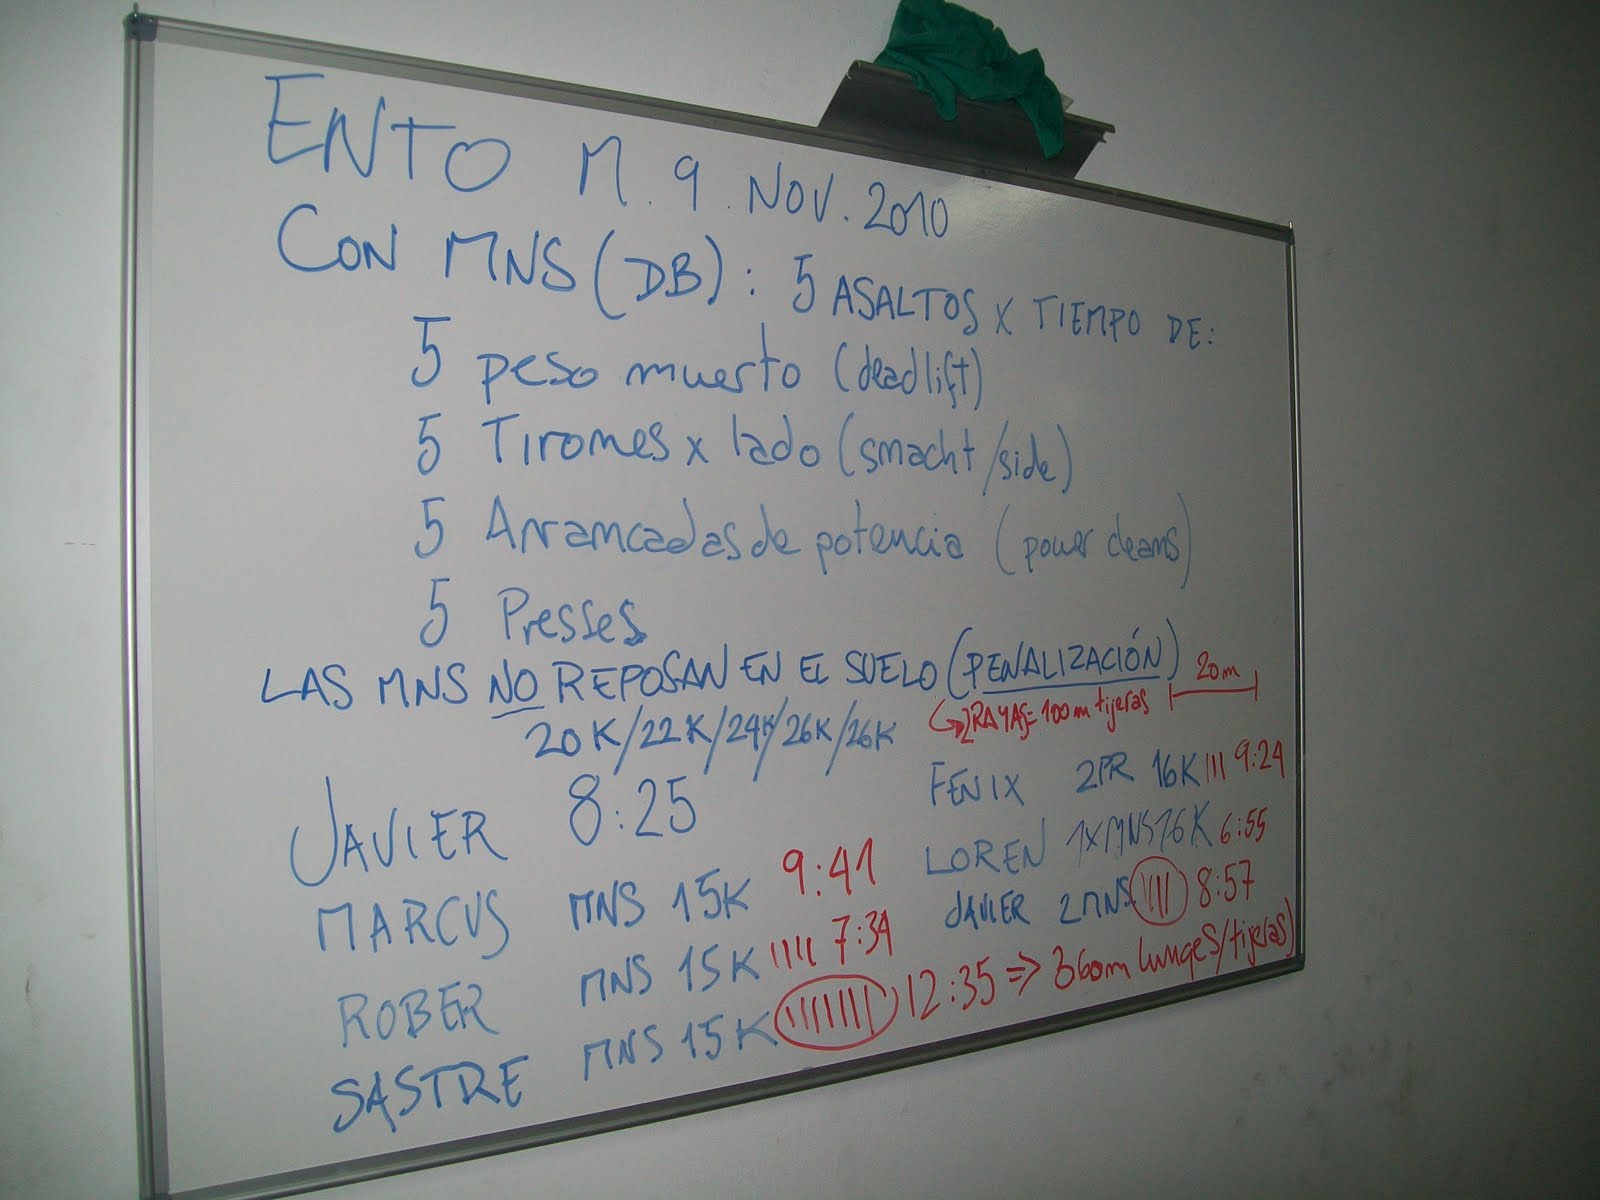 ENTO M. 9. NOV. 2010
CON MNS (DB): 5 ASALTOS X TIEMPO DE:
5 peso muerto (deadlift)
5 Tirones x lado (smacht/side)
5 Arrancadas de potencia (power cleans)
5 Presses
LAS MNS NO REPOSAN EN EL SUELO (PENALIZACIÓN)
20m
↪ 2RAYAS= 100m tijeras
20K/22K/24K/26K/26K
JAVIER 8:25
MARCUS MNS 15K 9:41
ROBER MNS 15K IIII 7:34
SASTRE MNS 15K IIIIIIII 12:35 => 360m lunges/tijeras)
FENIX 2PR 16K III 9:24
LOREN 1XMNS16K 6:55
JAVIER 2MNS IIII 8:57